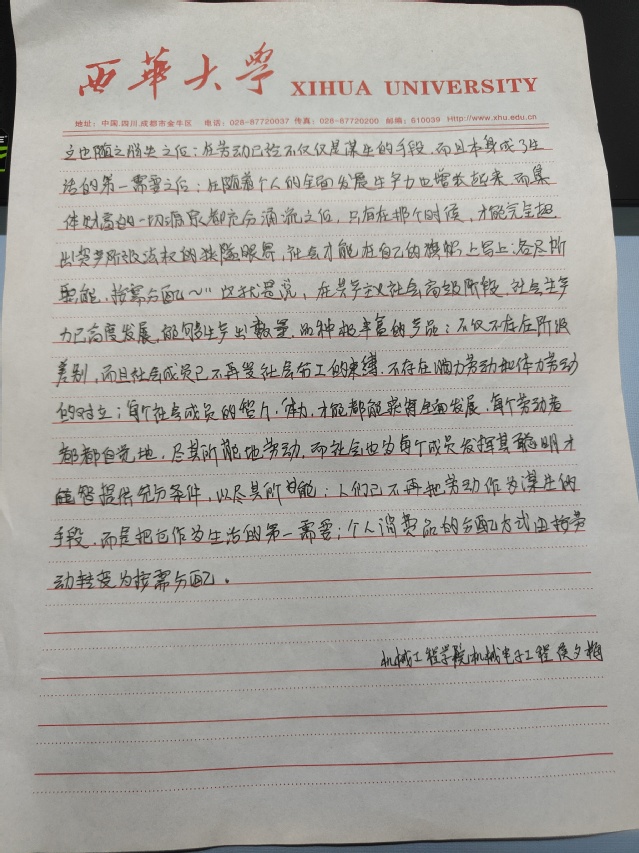 西華大学 XIHUA UNIVERSITY
地址：中国.四川.成都市金牛区 电话：028-87720037 传真：028-87720200 邮编：610039 Http://www.xhu.edu.cn
立也随之消失之后；在劳动已经不仅仅是谋生的手段，而且本身成了生
活的第一需要之后；在随着个人的全面发展生产力也增长起来，而集
体财富的一切源泉都充分涌流之后，只有在那个时候，才能完全超
出资产阶级法权的狭隘眼界，社会才能在自己的旗帜上写上：各尽所
能，按需分配～”这就是说，在共产主义社会高级阶段，社会生产
力已高度发展，能够生产出数量、品种极丰富的产品；不仅不存在阶级
差别，而且社会成员已不再受社会分工的束缚，不存在脑力劳动和体力劳动
的对立；每个社会成员的智力、体力、才能都能获得全面发展，每个劳动者
都都自觉地，尽其所能地劳动，而社会也为每个成员发挥其聪明才
智提供充分条件，以尽其所能；人们已不再把劳动作为谋生的
手段，而是把它作为生活的第一需要；个人消费品的分配方式由按劳
动转变为按需分配。
机械工程学院机械电子工程 侯夕